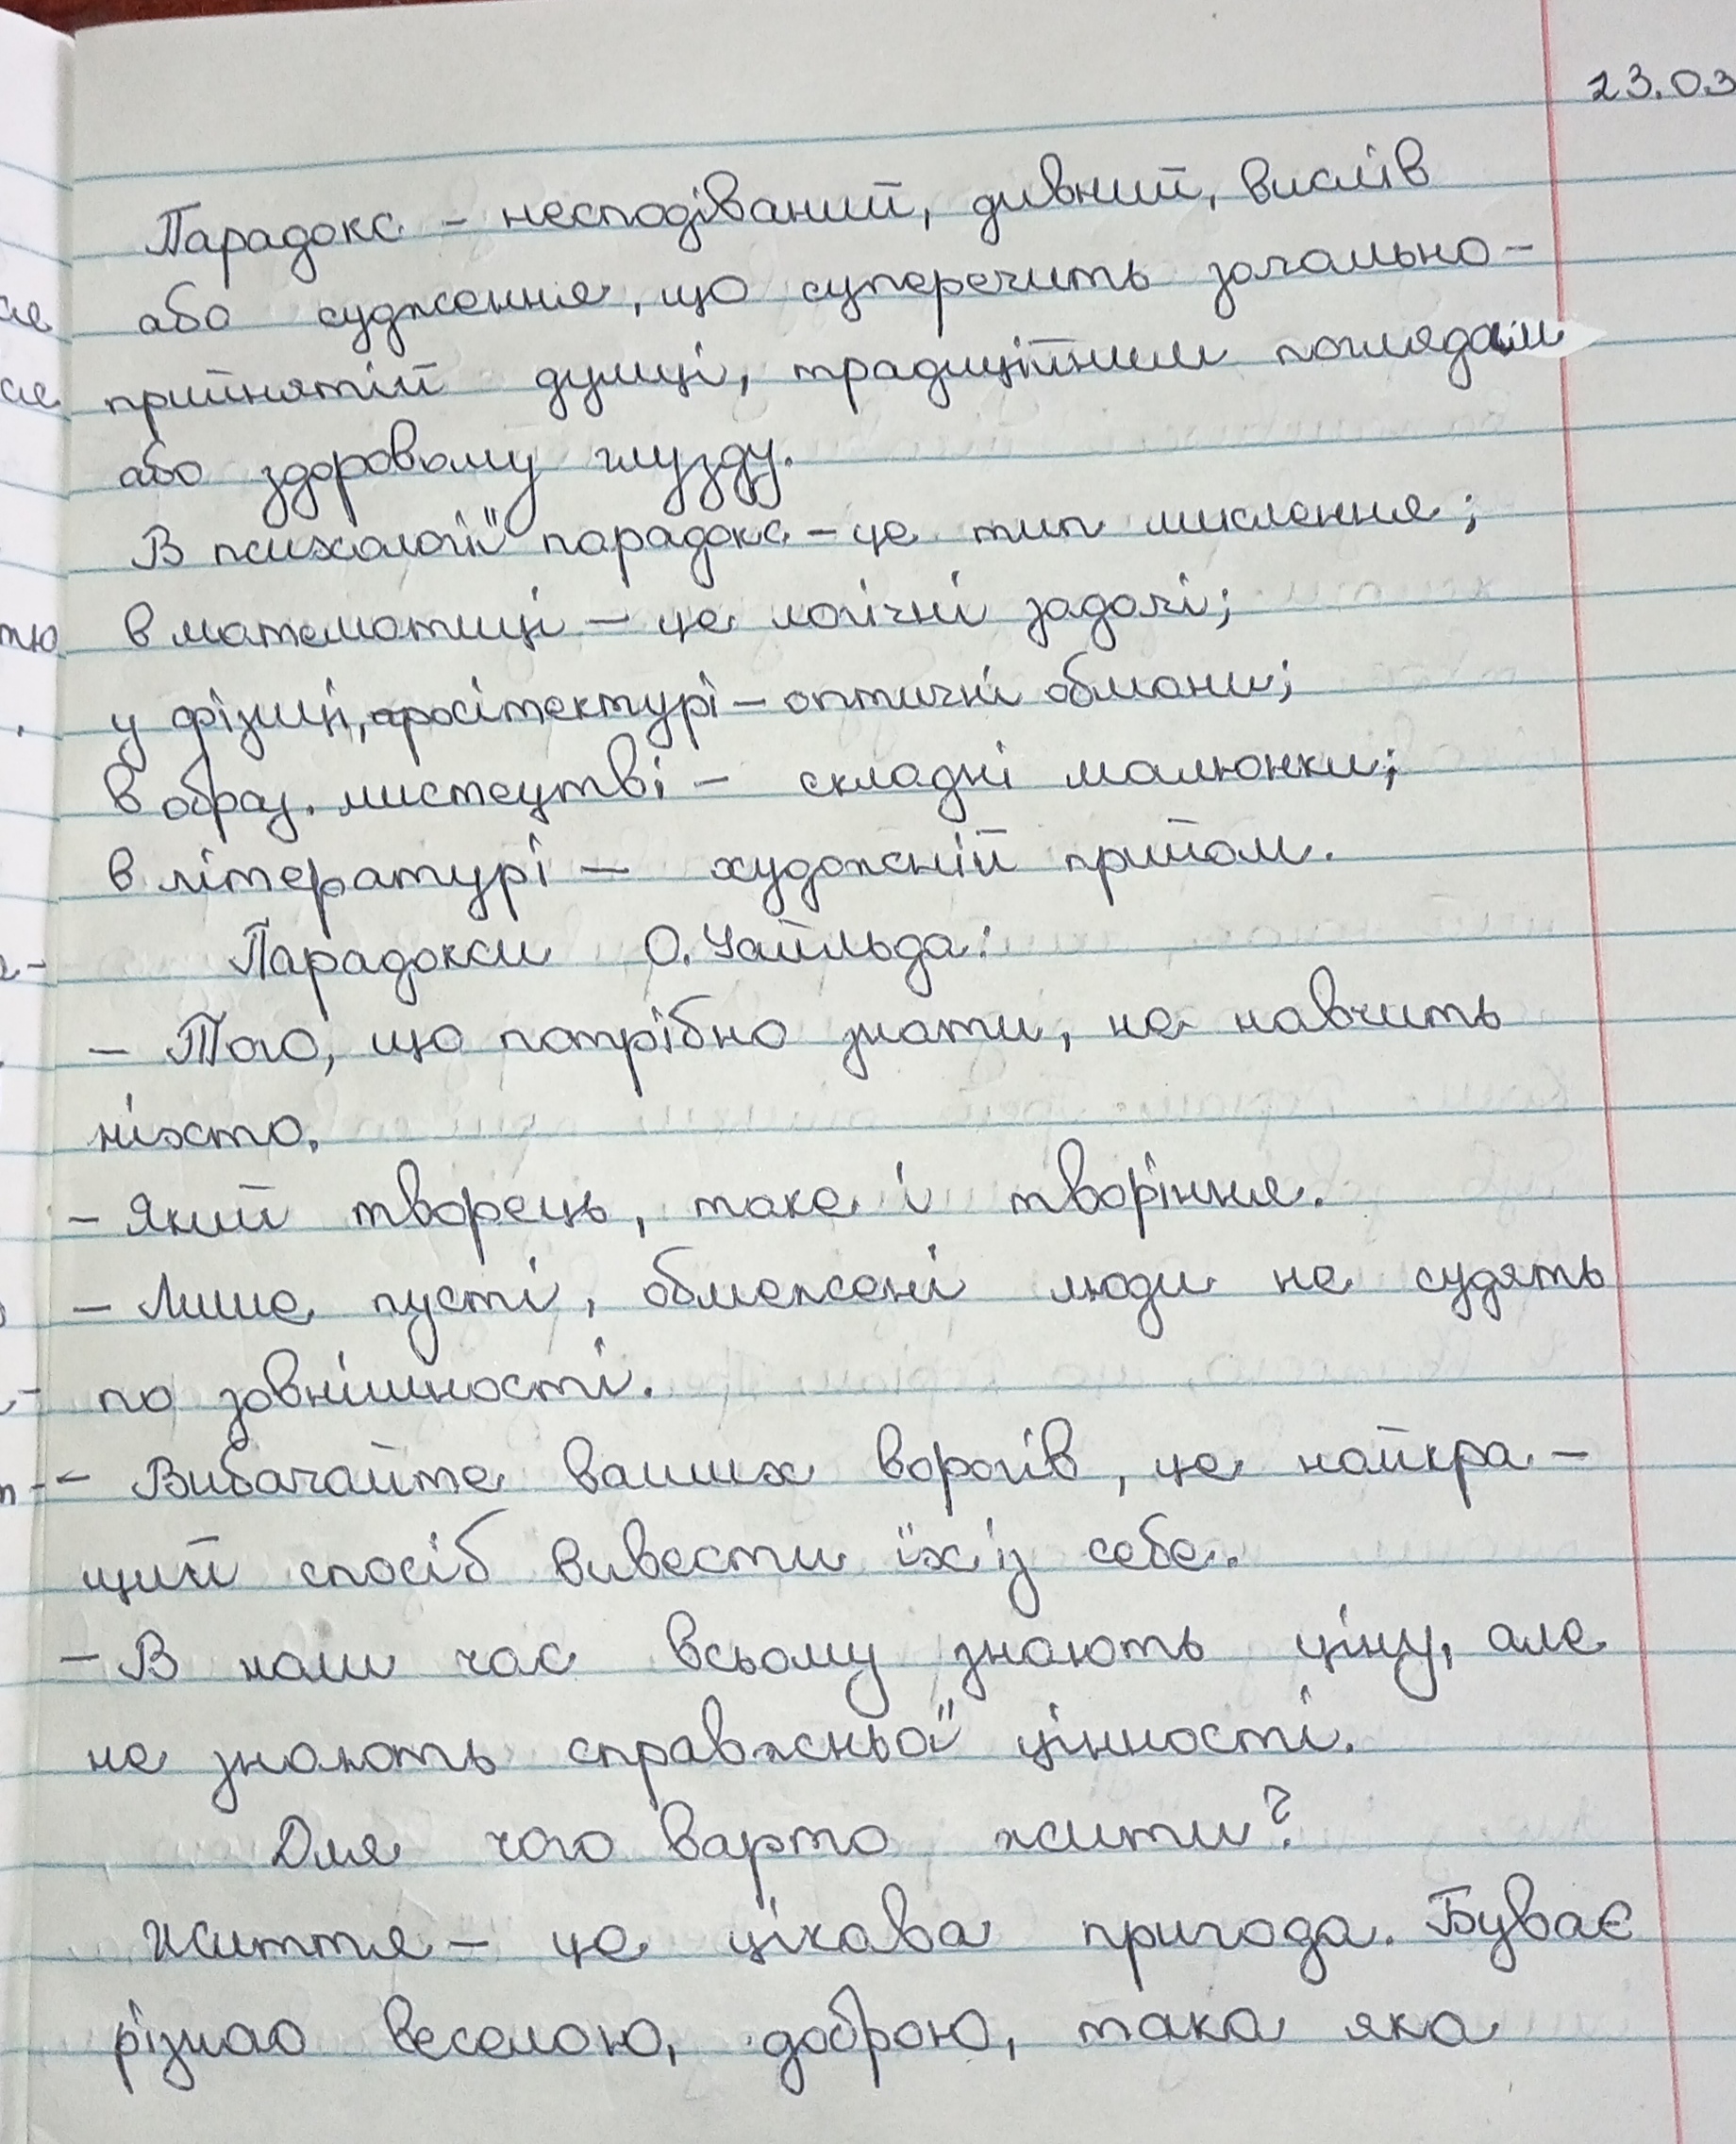 23.03
Парадокс – несподіваний, дивний, вислів
або судження, що суперечить загально-
прийнятій думці, традиційним поглядам
або здоровому глузду.
В психології парадокс – це тип мислення;
в математиці – це логічні задачі;
у фізиці, архітектурі – оптичні обмани;
в образ. мистецтві – складні малюнки;
в літературі – художній прийом.
Парадокси О. Уайльда:
– Того, що потрібно знати, не навчить
ніхто.
– Який творець, таке і творіння.
– Лише пусті, обмежені люди не судять
по зовнішності.
– Вибачайте ваших ворогів, це найкра-
щий спосіб вивести їх із себе.
– В наш час всьому знають ціну, але
не знають справжньої цінності.
Для чого варто жити?
Життя – це цікава пригода. Буває
різною веселою, доброю, така яка